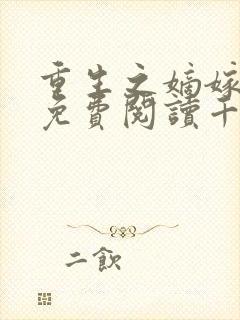 重生之嫡嫁
免費閱讀千
二飲